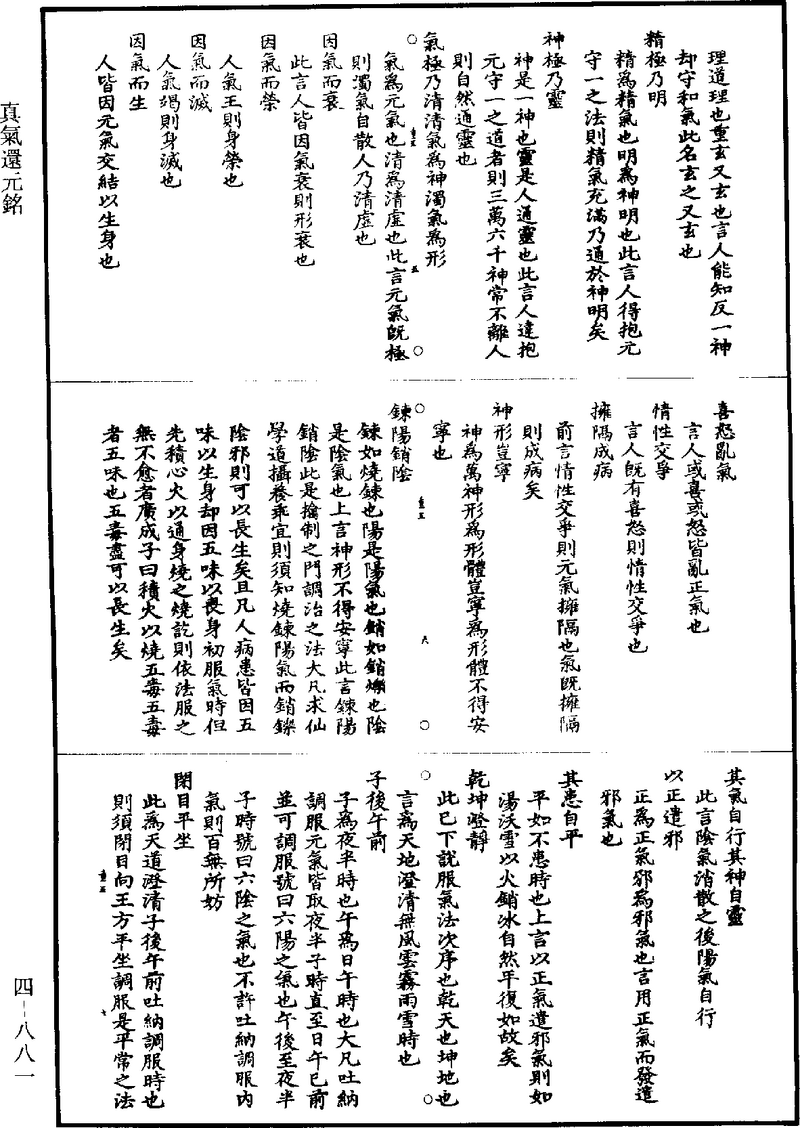 理道理也重玄又玄也言人能知反一神
却守和氣此名玄之又玄也
精極乃明
精為精氣也明為神明也此言人得抱元
守一之法則精氣充滿乃通於神明矣
神極乃靈
神是一神也靈是人通靈也此言人達抱
元守一之道者則三萬六千神常不離人
則自然通靈也
氣極乃清清氣為神濁氣為形
氣為元氣也清為清虛也此言元氣既極
則濁氣自散人乃清虛也
因氣而衰
此言人皆因氣衰則形衰也
因氣而榮
人氣王則身榮也
因氣而滅
人氣竭則身滅也
因氣而生
人皆因元氣交結以生身也
喜怒亂氣
言人或喜或怒皆亂正氣也
情性交爭
言人既有喜怒則情性交爭也
擁隔成病
前言情性交爭則元氣擁隔也氣既擁隔
則成病矣
神形豈寧
神為萬神形為形體豈寧為形體不得安
寧也
鍊陽銷陰
鍊如燒鍊也陽是陽氣也銷如銷爍也陰
是陰氣也上言神形不得安寧此言鍊陽
銷陰此是擒制之門調治之法大凡求仙
學道攝養乖宜則須知燒鍊陽氣而銷鑠
陰邪則可以長生矣且凡人病患皆因五
味以生身却因五味以喪身初服氣時但
先積心火以通身燒之燒訖則依法服之
無不愈者廣成子曰積火以燒五毒五毒
者五味也五毒盡可以長生矣
其氣自行其神自靈
此言陰氣消散之後陽氣自行
以正遣邪
正為正氣邪為邪氣也言用正氣而發遣
邪氣也
其患自平
平如不患時也上言以正氣遣邪氣則如
湯沃雪以火銷冰自然平復如故矣
乾坤澄靜
此已下說服氣法次序也乾天也坤地也
言為天地澄清無風雲霧雨雪時也
子後午前
子為夜半時也午為日午時也大凡吐納
調服元氣皆取夜半子時直至日午已前
並可調服號曰六陽之氣也午後至夜半
子時號曰六陰之氣也不許吐納調服內
氣則百無所妨
閉目平坐
此為天道澄清子後午前吐納調服時也
則須閉目向王方平坐調服是平常之法
真氣還元銘
四-八八一